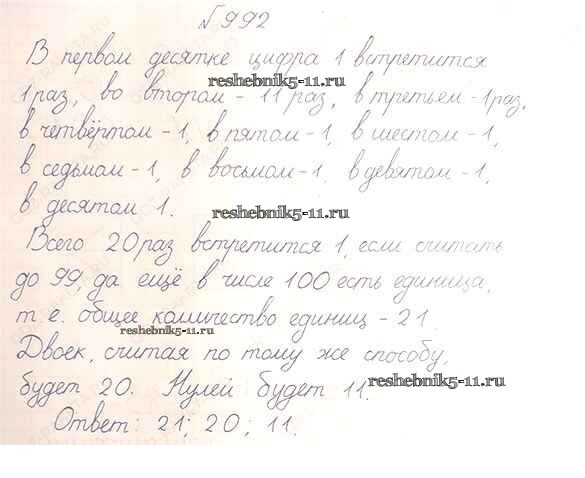 №992
В первом десятке цифра 1 встретится
reshebnik5-11.ru
1 раз, во втором - 11 раз, в третьем - 1 раз,
в четвёртом - 1, в пятом - 1, в шестом - 1,
в седьмом - 1, в восьмом - 1, в девятом - 1,
в десятом 1.
reshebnik5-11.ru
Всего 20 раз встретится 1, если считать
до 99, да ещё в числе 100 есть единица,
т.е. общее количество единиц - 21.
reshebnik5-11.ru
Двоек, считая по тому же способу,
будет 20. Нулей будет 11.
reshebnik5-11.ru
Ответ: 21; 20; 11.